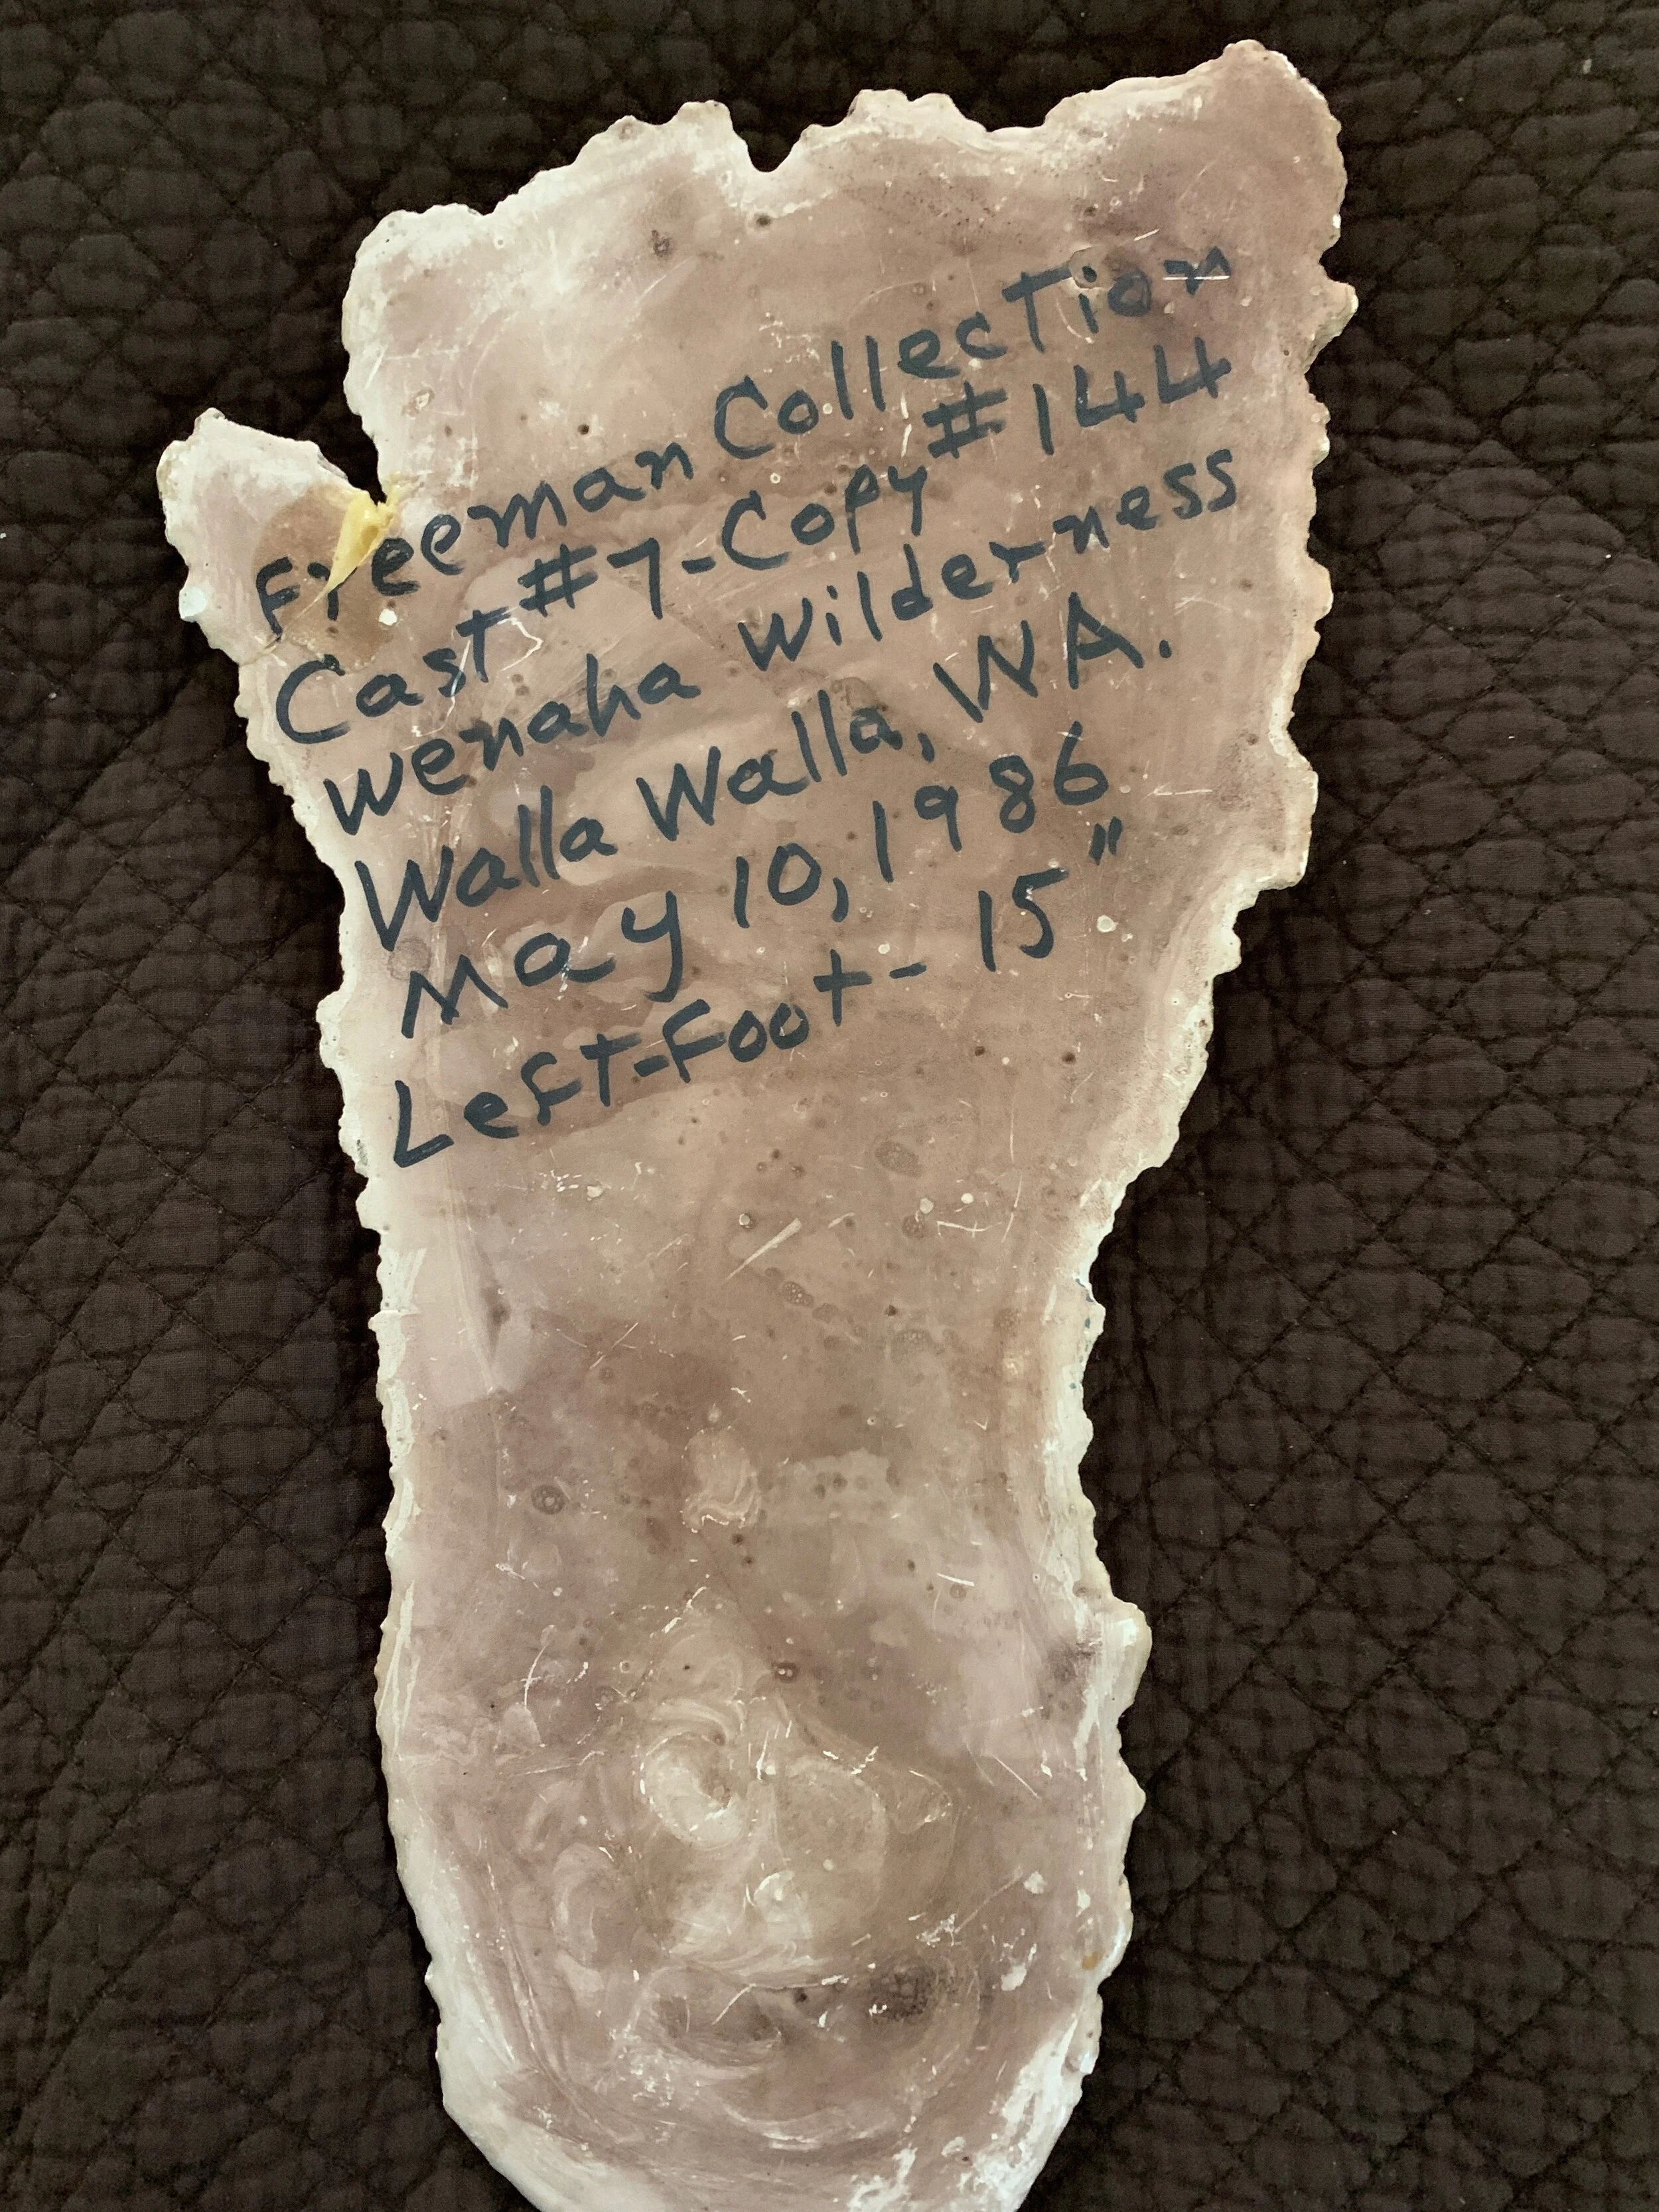 Freeman Collection
Cast #7-Copy #144
Wenaha Wilderness
Walla Walla, WA.
May 10, 1986
Left-Foot - 15"